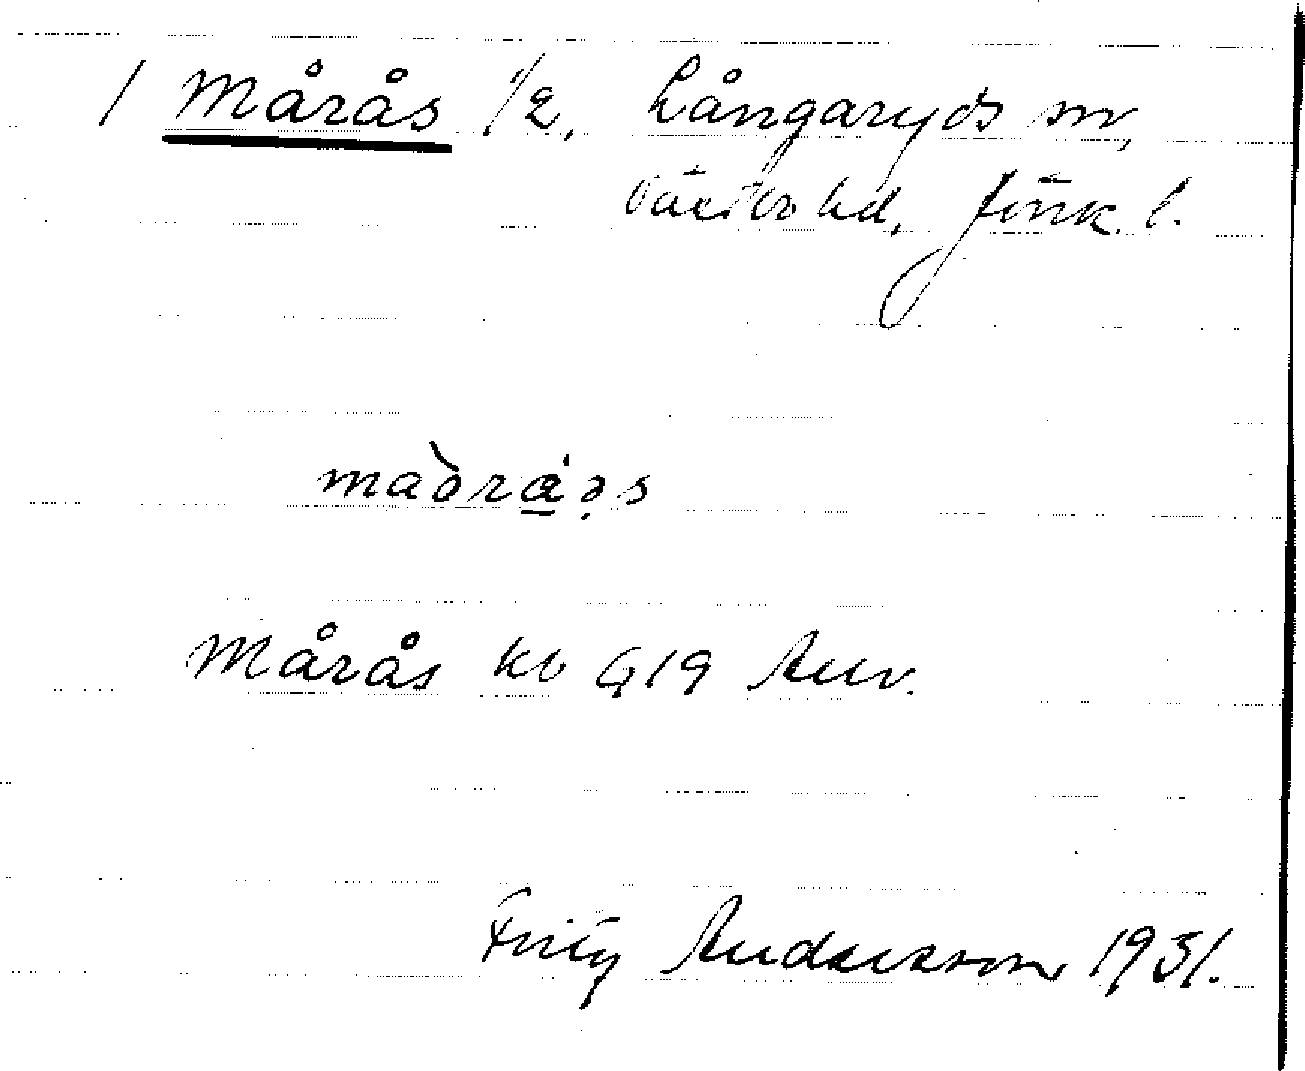 1 Mårås 1/2, Långaryds sn,
Västbo hd, Jönk. l.
maòrá̱ə̣s
Mårås kb G19 Anv.
Fritz Andersson 1931.